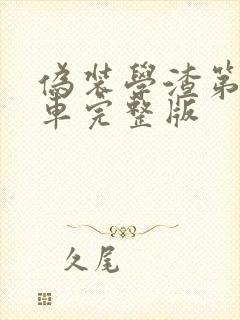 偽装學渣第
車完整版
久尾